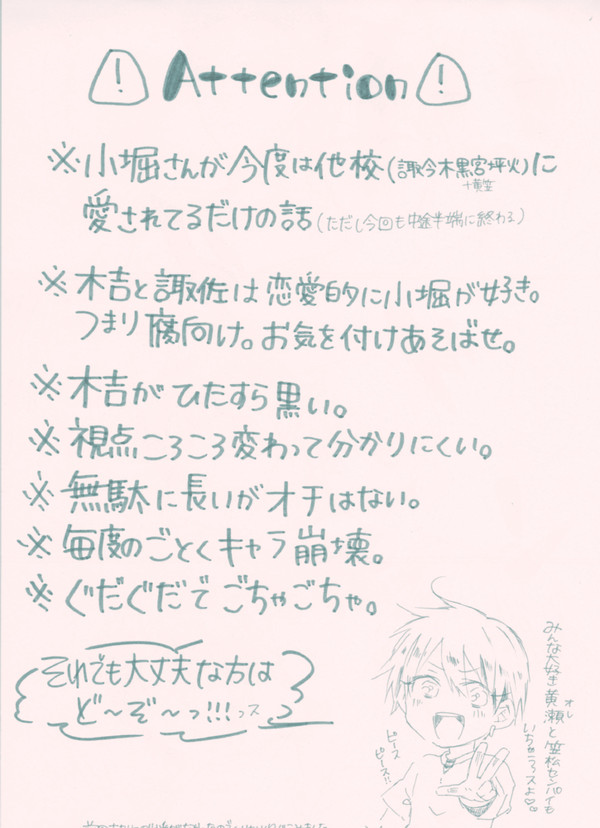 Attention
※小堀さんが今度は他校(諏今木黒宮坪火)に
+黄笠
愛されてるだけの話(ただし今回も中途半端に終わる)
※木吉と諏佐は恋愛的に小堀が好き。
つまり腐向け。お気を付けあそばせ。
※木吉がひたすら黒い。
※視点ころころ変わって分かりにくい。
※無駄に長いがオチはない。
※毎度のごとくキャラ崩壊。
※ぐだぐだでごちゃごちゃ。
それでも大丈夫な方は
ど〜ぞ〜っ!!!っス
みんな大好き黄瀬と笠松センパイも
オレ
いちゃつっスよ♡♡
ピース
ピース!!